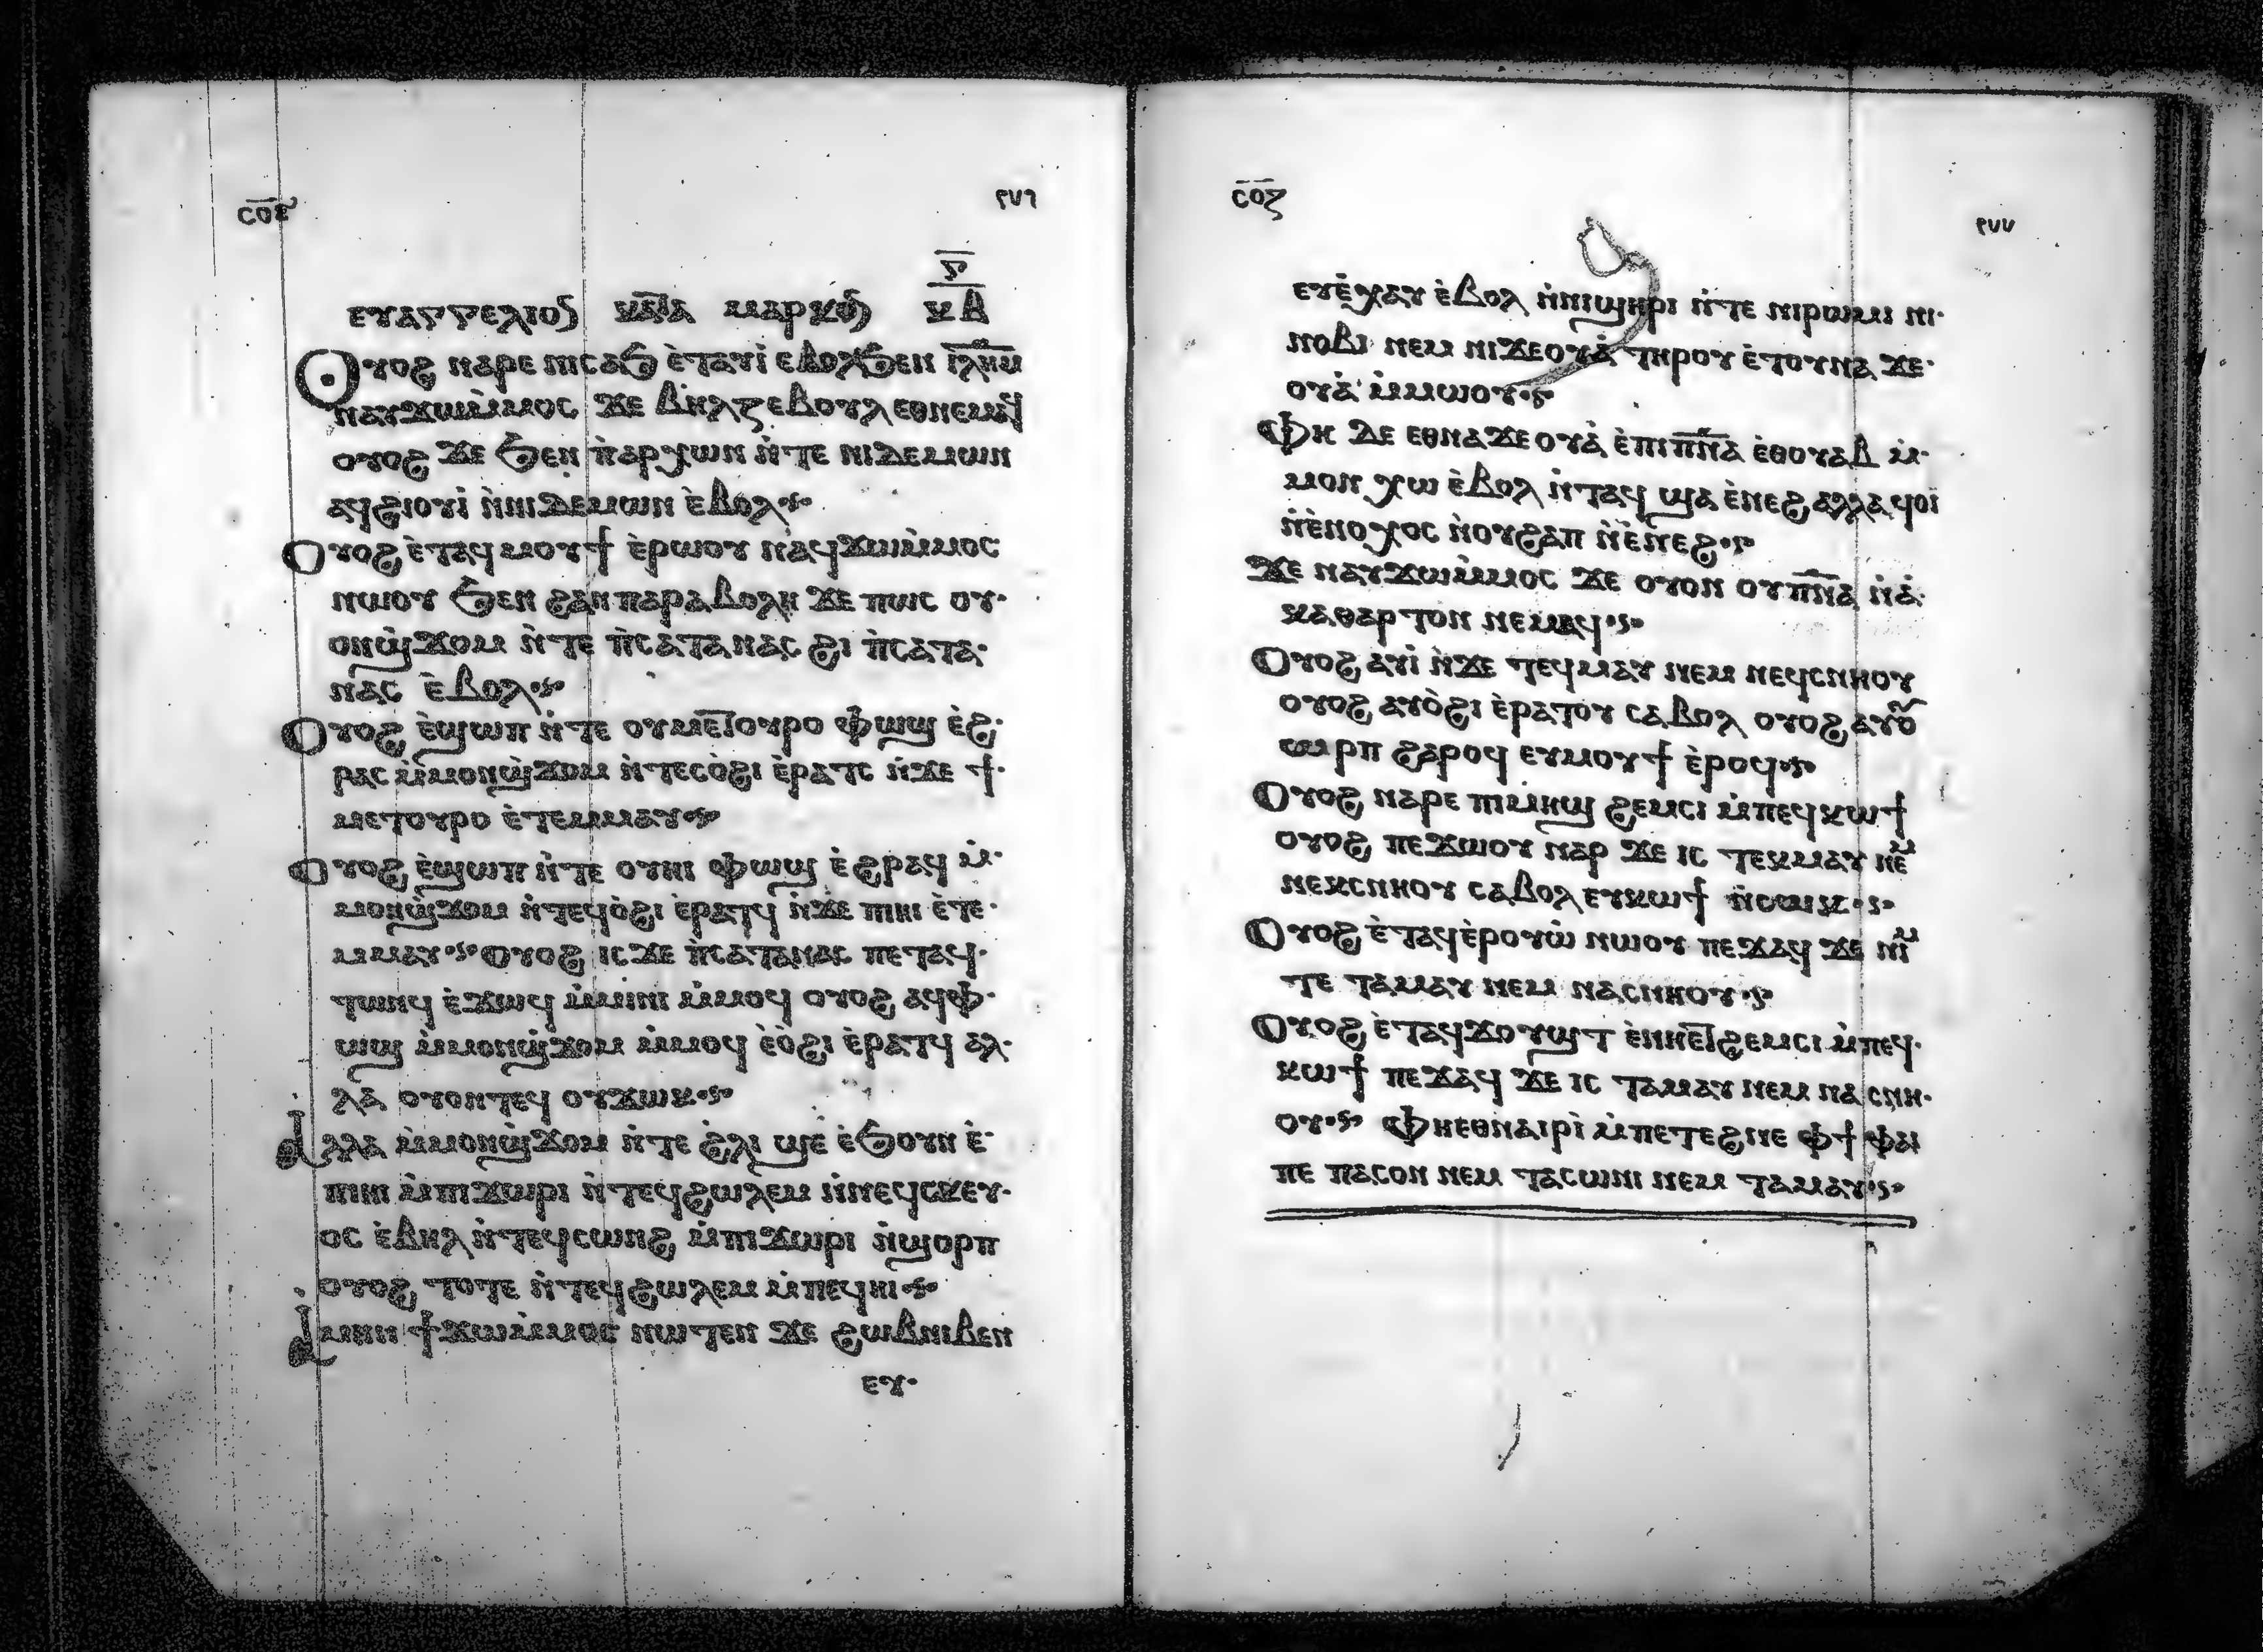 ⲥⲟⲋ ٢٧٦
ⲉⲩⲁⲅⲅⲉⲗⲓⲟⲛ ⲕⲁⲧⲁ ⲙⲁⲣⲕⲟⲛ ⲅ̅ ⲕⲃ
Ⲟⲩⲟϩ ⲛⲁⲣⲉ ⲛⲓⲥⲁϧ ⲉ̀ⲧⲁⲩⲓ̀ ⲉⲃⲟⲗϧⲉⲛ ⲓ̅ⲗ̅ⲏ̅ⲙ̅
ⲛⲁⲩϫⲱⲙ̀ⲙⲟⲥ ϫⲉ ⲃⲏⲗⲍⲉⲃⲟⲩⲗ ⲉⲑⲛⲉⲙⲁϥ
ⲟⲩⲟϩ ϫⲉ ϧⲉⲛ ⲡ̀ⲁⲣⲭⲱⲛ ⲛ̀ⲧⲉ ⲛⲓⲇⲉⲙⲱⲛ
ⲁϥϩⲓⲟⲩⲓ̀ ⲛ̀ⲛⲓⲇⲉⲙⲱⲛ ⲉ̀ⲃⲟⲗ·
Ⲟⲩⲟϩ ⲉ̀ⲧⲁϥⲙⲟⲩϯ ⲉ̀ⲣⲱⲟⲩ ⲛⲁϥϫⲱⲙ̀ⲙⲟⲥ
ⲛⲱⲟⲩ ϧⲉⲛ ϩⲁⲛⲡⲁⲣⲁⲃⲟⲗⲏ ϫⲉ ⲡⲱⲥ ⲟⲩ·
ⲟⲛϣ̀ϫⲟⲙ ⲛ̀ⲧⲉ ⲡ̀ⲥⲁⲧⲁⲛⲁⲥ ϩⲓ ⲡ̀ⲥⲁⲧⲁ·
ⲛⲁⲥ ⲉ̀ⲃⲟⲗ·
Ⲟⲩⲟϩ ⲉ̀ϣⲱⲡ ⲛ̀ⲧⲉ ⲟⲩⲙⲉⲧⲟⲩⲣⲟ ⲫⲱϣ ⲉ̀ϩ·
ⲣⲁⲥ ⲙ̀ⲙⲟⲛϣ̀ϫⲟⲙ ⲛ̀ⲧⲉⲥⲟ̀ϩⲓ ⲉ̀ⲣⲁⲧⲥ ⲛ̀ϫⲉ ϯ·
ⲙⲉⲧⲟⲩⲣⲟ ⲉ̀ⲧⲉⲙⲙⲁⲩ·
Ⲟⲩⲟϩ ⲉ̀ϣⲱⲡ ⲛ̀ⲧⲉ ⲟⲩⲏⲓ ⲫⲱϣ ⲉ̀ϩⲣⲁϥ ⲙ̀·
ⲙⲟⲛϣ̀ϫⲟⲙ ⲛ̀ⲧⲉϥⲟ̀ϩⲓ ⲉ̀ⲣⲁⲧϥ ⲛ̀ϫⲉ ⲡⲓⲏⲓ ⲉ̀ⲧⲉ·
ⲙⲙⲁⲩ· Ⲟⲩⲟϩ ⲓⲥϫⲉ ⲡ̀ⲥⲁⲧⲁⲛⲁⲥ ⲡⲉⲧⲁϥ·
ⲧⲱⲛϥ ⲉ̀ϫⲱϥ ⲙ̀ⲙⲓⲛⲓ ⲙ̀ⲙⲟϥ ⲟⲩⲟϩ ⲁϥⲫ·
ⲱϣ ⲙ̀ⲙⲟⲛϣ̀ϫⲟⲙ ⲙ̀ⲙⲟϥ ⲉ̀ⲟ̀ϩⲓ ⲉ̀ⲣⲁⲧϥ ⲁⲗ·
ⲗⲁ ⲟⲩⲟⲛⲧⲉϥ ⲟⲩϫⲱⲕ·
Ⲁⲗⲗⲁ ⲙ̀ⲙⲟⲛϣ̀ϫⲟⲙ ⲛ̀ⲧⲉ ϩ̀ⲗⲓ ϣⲉ ⲉ̀ϧⲟⲩⲛ ⲉ̀·
ⲡⲓⲏⲓ ⲙ̀ⲡⲓϫⲱⲣⲓ ⲛ̀ⲧⲉϥϩⲱⲗⲉⲙ ⲛ̀ⲛⲉϥⲥⲕⲉⲩ·
ⲟⲥ ⲉ̀ⲃⲏⲗ ⲛ̀ⲧⲉϥⲥⲱⲛϩ ⲙ̀ⲡⲓϫⲱⲣⲓ ⲛ̀ϣⲟⲣⲡ
ⲟⲩⲟϩ ⲧⲟⲧⲉ ⲛ̀ⲧⲉϥϩⲱⲗⲉⲙ ⲙ̀ⲡⲉϥⲏⲓ·
Ⲁⲙⲏⲛ ϯϫⲱⲙ̀ⲙⲟⲥ ⲛⲱⲧⲉⲛ ϫⲉ ϩⲱⲃⲛⲓⲃⲉⲛ
ⲉⲩ·
ⲥⲟⲍ ٢٧٧
ⲉⲩⲉ̀ⲭⲁⲩ ⲉ̀ⲃⲟⲗ ⲛ̀ⲛⲓϣⲏⲣⲓ ⲛ̀ⲧⲉ ⲛⲓⲣⲱⲙⲓ ⲛⲓ·
ⲛⲟⲃⲓ ⲛⲉⲙ ⲛⲓϫⲉⲟⲩⲁ̀ ⲧⲏⲣⲟⲩ ⲉ̀ⲧⲟⲩⲛⲁ ϫⲉ·
ⲟⲩⲁ̀ ⲙ̀ⲙⲱⲟⲩ·
Ⲫⲏ ⲇⲉ ⲉⲑⲛⲁϫⲉⲟⲩⲁ̀ ⲉ̀ⲡⲓⲡ̅ⲛ̅ⲁ̅ ⲉ̀ⲑⲟⲩⲁⲃ ⲙ̀·
ⲙⲟⲛ ⲭⲱ ⲉ̀ⲃⲟⲗ ⲛ̀ⲧⲁϥ ϣⲁ ⲉ̀ⲛⲉϩ ⲁⲗⲗⲁ ϥⲟⲓ
ⲛ̀ⲉ̀ⲛⲟⲭⲟⲥ ⲛ̀ⲟⲩϩⲁⲡ ⲛ̀ⲉ̀ⲛⲉϩ·
Ϫⲉ ⲛⲁⲩϫⲱⲙ̀ⲙⲟⲥ ϫⲉ ⲟⲩⲟⲛ ⲟⲩⲡ̅ⲛ̅ⲁ̅ ⲛ̀ⲁ̀·
ⲕⲁⲑⲁⲣⲧⲟⲛ ⲛⲉⲙⲁϥ·
Ⲟⲩⲟϩ ⲁⲩⲓ̀ ⲛ̀ϫⲉ ⲧⲉϥⲙⲁⲩ ⲛⲉⲙ ⲛⲉϥⲥⲛⲏⲟⲩ
ⲟⲩⲟϩ ⲁⲩⲟ̀ϩⲓ ⲉ̀ⲣⲁⲧⲟⲩ ⲥⲁⲃⲟⲗ ⲟⲩⲟϩ ⲁⲩⲟ
ⲱⲣⲡ ϩⲁⲣⲟϥ ⲉⲩⲙⲟⲩϯ ⲉ̀ⲣⲟϥ·
Ⲟⲩⲟϩ ⲛⲁⲣⲉ ⲡⲓⲙⲏϣ ϩⲉⲙⲥⲓ ⲙ̀ⲡⲉϥⲕⲱϯ
ⲟⲩⲟϩ ⲡⲉϫⲱⲟⲩ ⲛⲁϥ ϫⲉ ⲓⲥ ⲧⲉⲕⲙⲁⲩ ⲛⲉⲙ
ⲛⲉⲕⲥⲛⲏⲟⲩ ⲥⲁⲃⲟⲗ ⲉⲩⲕⲱϯ ⲛ̀ⲥⲱⲕ·
Ⲟⲩⲟϩ ⲉ̀ⲧⲁϥⲉ̀ⲣⲟⲩⲱ̀ ⲛⲱⲟⲩ ⲡⲉϫⲁϥ ϫⲉ ⲛⲓⲙ
ⲧⲉ ⲧⲁⲙⲁⲩ ⲛⲉⲙ ⲛⲁⲥⲛⲏⲟⲩ·
Ⲟⲩⲟϩ ⲉ̀ⲧⲁϥϫⲟⲩϣⲧ ⲉ̀ⲛⲏⲉⲧϩⲉⲙⲥⲓ ⲙ̀ⲡⲉϥ·
ⲕⲱϯ ⲡⲉϫⲁϥ ϫⲉ ⲓⲥ ⲧⲁⲙⲁⲩ ⲛⲉⲙ ⲛⲁⲥⲛⲏ·
ⲟⲩ· Ⲫⲏⲉⲑⲛⲁⲓⲣⲓ ⲙ̀ⲡⲉⲧⲉϩⲛⲉ ⲫϯ ⲫⲁⲓ
ⲡⲉ ⲡⲁⲥⲟⲛ ⲛⲉⲙ ⲧⲁⲥⲱⲛⲓ ⲛⲉⲙ ⲧⲁⲙⲁⲩ·